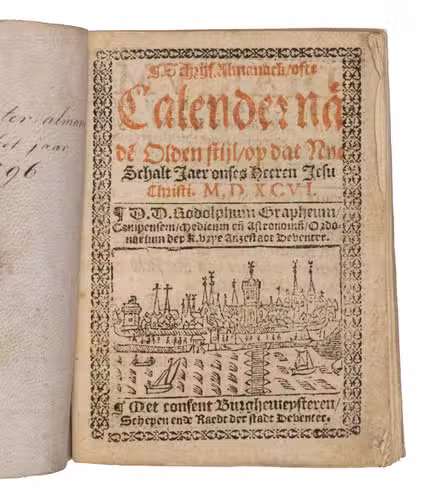 ter alman
het jaar
96
¶ Schrijf Almanack/ofte
Calender nā
dē Olden stijl/op dat Nye
Schalt Jaer onses Heeren Jesu
Christi. M.D.XCVI.
¶ D.D. Rodolphum Grapheum/
Medicum eñ Astronomū/Ordi-
narium der K. vrye Anzestadt Deventer.
¶ Met consent Burghemeysteren/
Schepen ende Raedt der stadt Deventer.